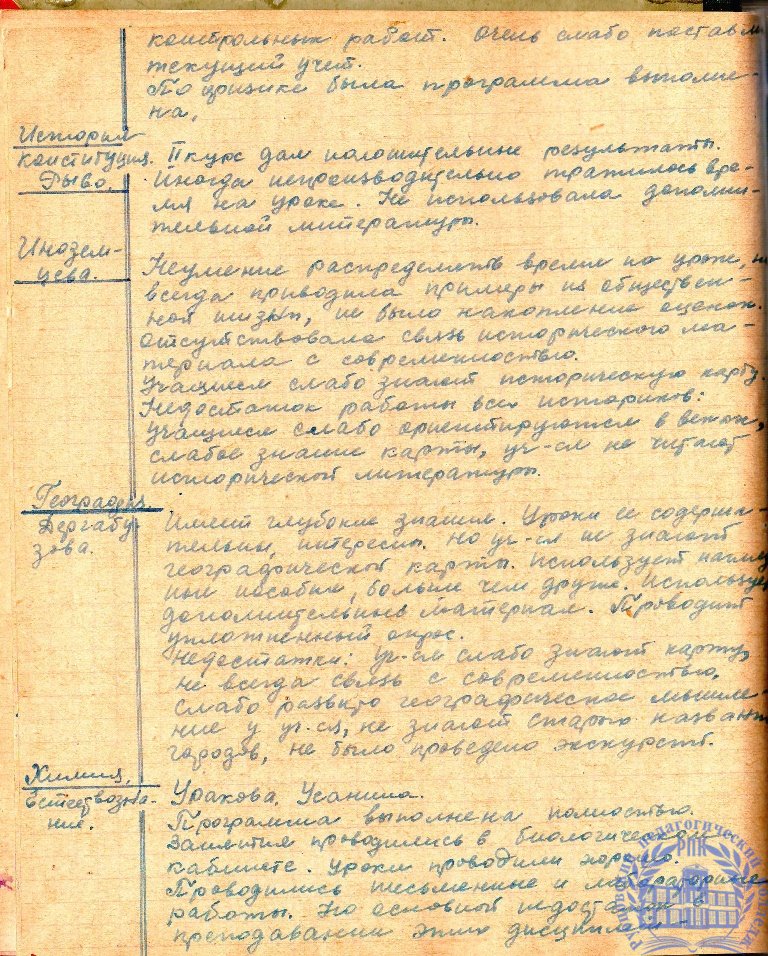 контрольных работ. Очень слабо поставлен
текущий учет.
По физике была программа выполне-
на.
История
Конституция. II курс дал положительные результаты.
Рыво. Иногда непроизводительно тратилось вре-
мя на уроке. Не использовала дополни-
тельной литературы.
Инозем-
цева. Неумение распределять время на уроке, не
всегда приводила примеры из обществен-
ной жизни, не было накопление оценок.
Отсутствовала связь исторического ма-
териала с современностью.
Учащиеся слабо знают историческую карту.
Недостаток работы всех историков:
учащиеся слабо ориентируются в веках,
слабое знание карты, уч-ся не читают
исторической литературы.
География
Дергабу-
зова. Имеет глубокие знания. Уроки ее содержа-
тельны, интересны. Но уч-ся не знают
географической карты. Использует нагляд
ные пособия, больше чем другие. Использует
дополнительные материал. Проводит
уплотненный опрос.
Недостатки: уч-ся слабо знают карту,
не всегда связь с современностью,
слабо развито географическое мышле-
ние у уч-ся, не знают старых назван
городов, не было проведено экскурсий.
Химия,
Естествозна-
ние. Уракова, Усанина.
Программа выполнена полностью.
Занятия проводились в биологическом
кабинете. Уроки проводили хорошо.
Проводились письменные и лабораторные
работы. Но основной недостаток в
преподавании этих дисциплин
педагогический
РПК